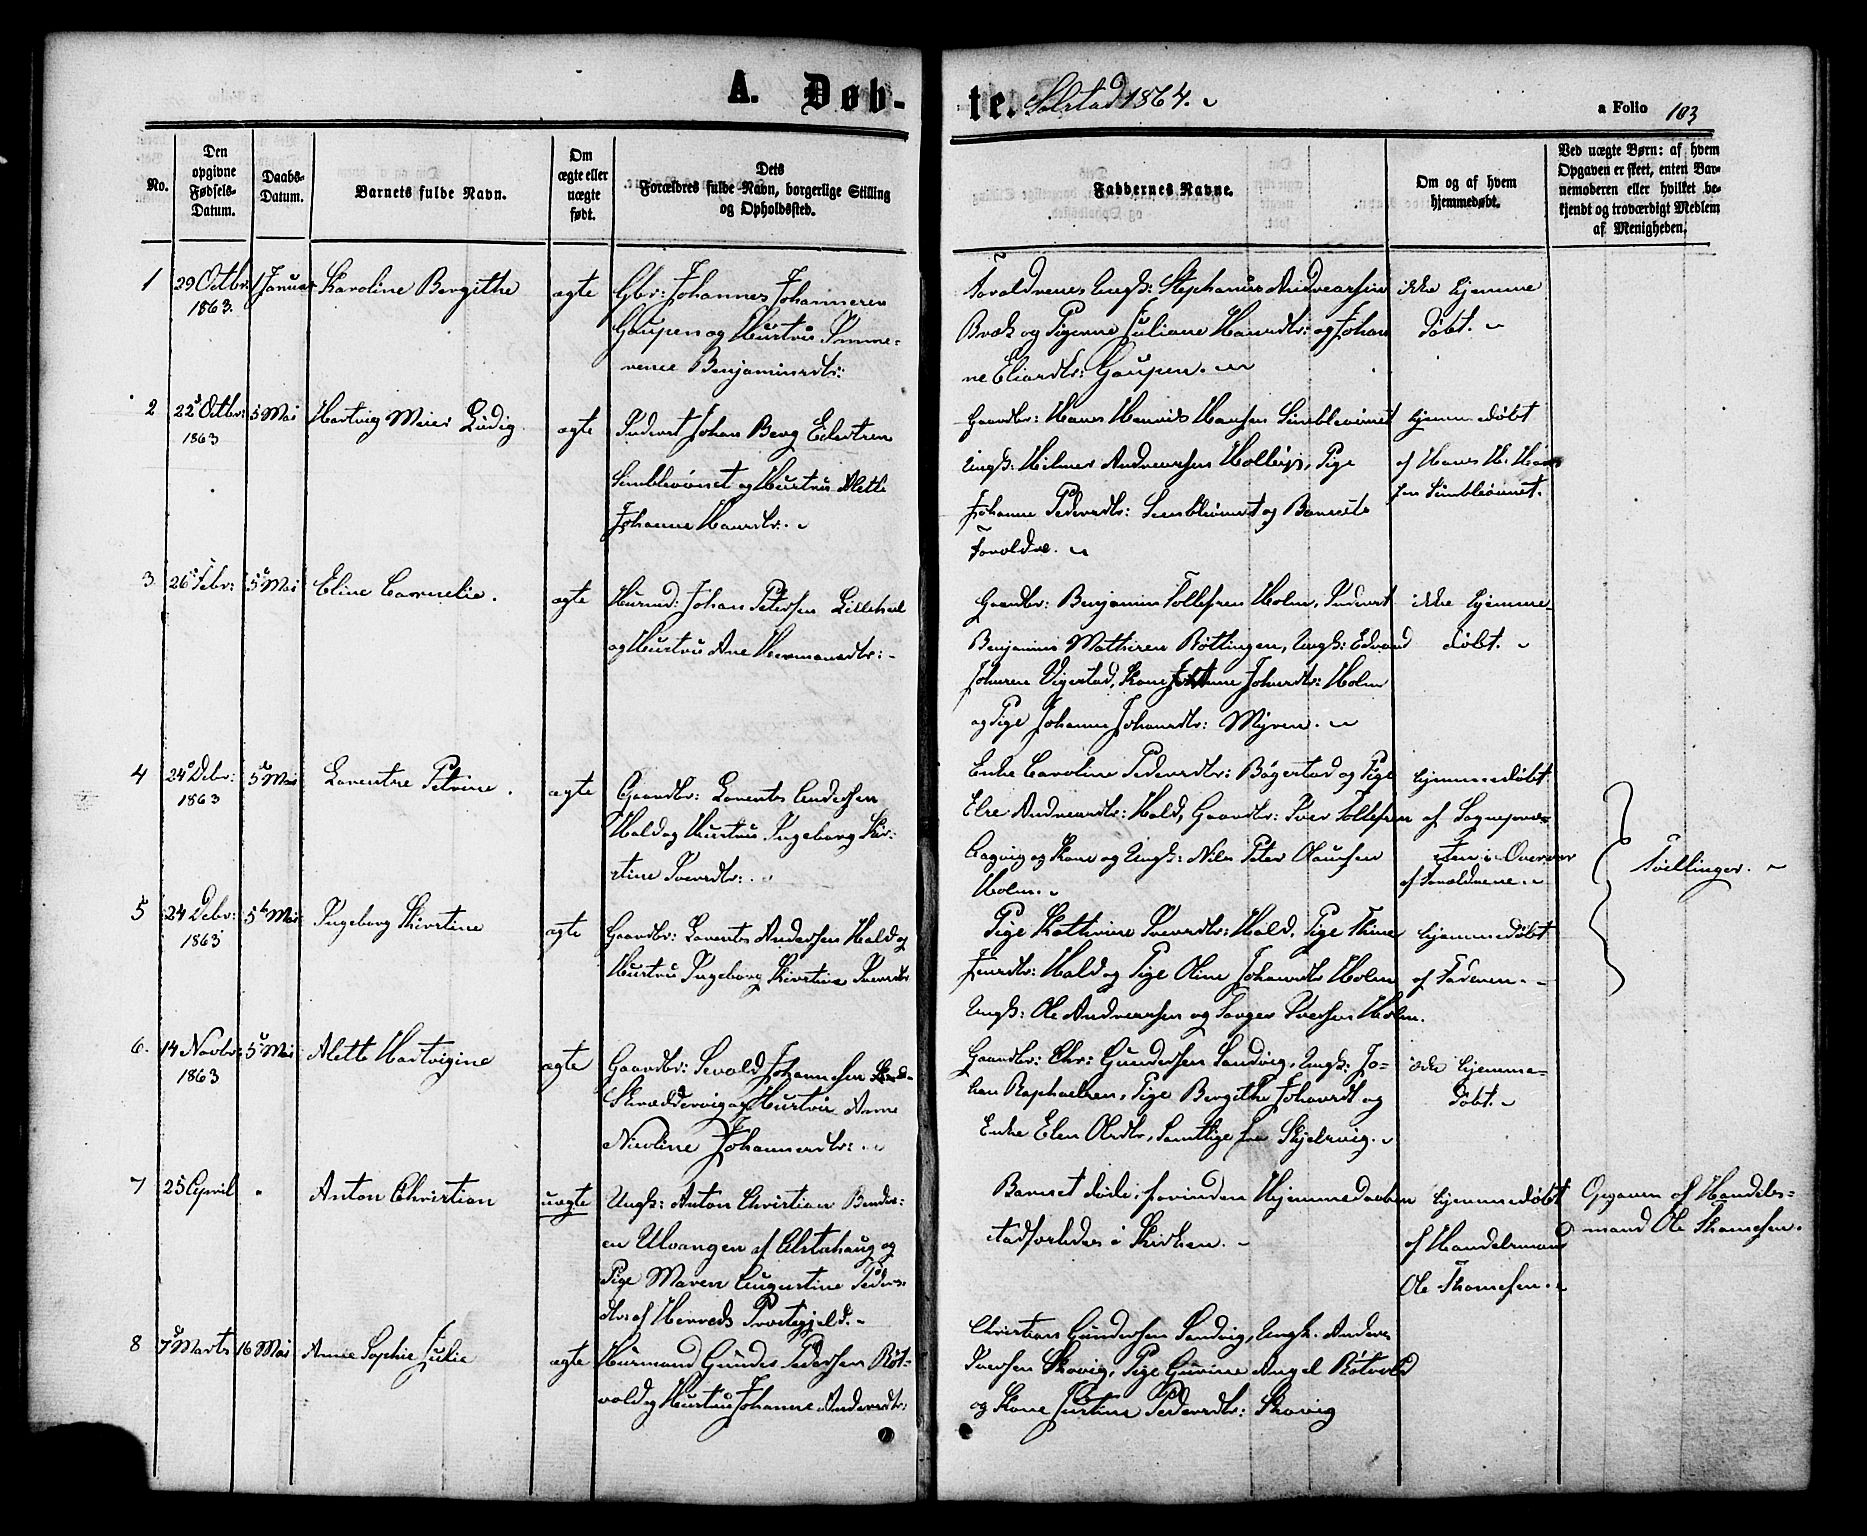 A. Døb-
te. Solstad 1864.
a Folio 103
No.
Den
opgivne
Fødsels-
Datum.
Daabs-
Datum.
Barnets fulde Navn.
Om
ægte eller
uægte
født.
Dets
Forældres fulde Navn, borgerlige Stilling
og Opholdssted.
Faddernes Navne.
Om og af hvem
hjemmedøbt.
Ved uægte Børn: af hvem
Opgaven er skeet, enten Bar-
nemoderen eller hvilket be-
kjendt og troværdigt Medlem
af Menigheden.
1
29 Octbr:
1863.
1 Januar
Karoline Bergithe
ægte
Gbr: Johannes Johannesen
Gaupen og Hustru
Benjaminsdtr:
Forældrenes Ungk: Stephanus Andreassen
Bræk og Pigerne Juliane Hansdtr: og Johan
ne Eliasdtr: Gaupen.
ikke hjemme
døbt.
2
22 Octbr:
1863
5 Mai
Hartvig Meier Ludig
ægte
Inderst Johan Berg Edestrøm
og Hustru Alette
Johanne Hansdtr:
Gaardbr: Hans Henrik Hansen
Ungk: Hilmer Andreassen Pige
Johanne Pedersdtr: og Barnets
Forældre.
hjemmedøbt
af Hans H. Han
sen
3
26 Febr:
5 Mai
Eline Cornelie.
ægte
Husmd: Johan Petersen
og Hustru Ane Hermansdtr:
Gaardbr: Benjamin Tollefsen Holm, Inderst
Benjamin Mathisen Røllingen, Ungk: Edvard
Johnsen Vigestad, Kone Johnsdtr: Holm
og Pige Johanne Johansdtr: Myren.
ikke hjemme-
døbt.
4
24 Debr:
1863
5 Mai
Lorentse Petrine.
ægte
Gaardbr: Lorents Andersen
Hald og Hustru Ingeborg Kir:
stine Iversdtr:
Enke Caroline Pedersdtr: Bøgestad og Pige
Else Andreasdtr: Hald, Gaardbr: Iver Tollefsen
og Kone og Ungk: Nils Peter Olaussen
Holm.
hjemmedøbt
af Sognepræ-
sten i Overvær
af Forældrene.
Tvillinger.
5
24 Debr:
1863
5 Mai
Ingeborg Kirstine
ægte
Gaardbr: Lorents Andersen Hald og
Hustru Ingeborg Kirstine Iversdtr
Pige Kathrine Iversdtr: Hald, Pige Thine
Jensdtr: Hald og Pige Oline Johansdtr Holm
Ungk: Ole Andreassen og Iversen Holm.
hjemmedøbt
af Faderen.
6.
14 Novbr:
1863
5 Mai
Alette Hartvigine
ægte
Gaardbr: Sevald Johannesen
Skræddervig og Hustru Anne
Nicoline Johannesdtr:
Gaardbr: Chr: Gundersen Sandvig, Ungk: Jo-
han Raphaelsen, Pige Bergithe Johansdt og
Enke Elen Olsdtr, Samtlige fra Skjelvig.
ikke hjemme-
døbt.
7
25 April
Anton Christian
uægte
Ungk: Anton Christian
en Ulvangen af Alstahaug og
Pige Maren Augustine Peders
dtr af Herreds Præstegjeld.
Barnet døde, forinden Hjemmedaaben
stadfæstedes i Kirken.
hjemmedøbt
af Handelsmand
Ole Thomesen.
Opgaven af Handels-
mand Ole Thomesen.
8
7 Marts
16 Mai
Anne Sophie Julie
ægte
Husmand Gunder Pedersen Røt-
vold og Hustru Johanne Andersdtr:
Christian Gundersen Sandvig, Ungk. Anders
Iversen Skovig, Pige Gurine Angel Røtvold
og Kone Justine Pedersdtr: Skovig